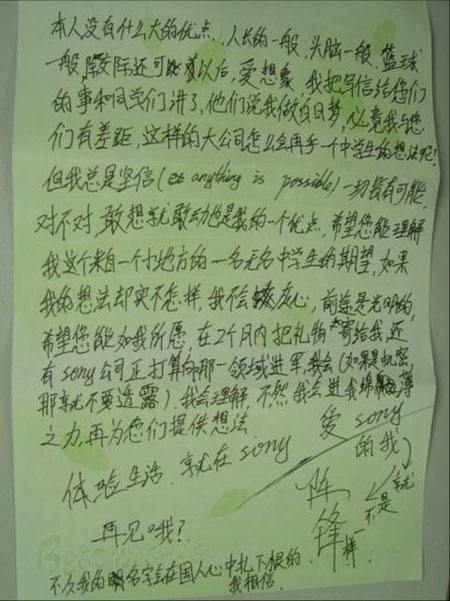 本人没有什么大的优点．人长的一般，头脑一般．篮球
一般，实际还可能以后，爱想象，我把写信给您们
的事和同学们讲了，他们说我做白日梦，必竟我与您
们有差距，这样的大公司怎么会再乎一个中学生的想法呢？
但我总是坚信（anything is possible）一切皆有可能．
对不对．敢想就敢动也是我的一个优点．希望您能理解
我这个来自一个小地方的一名无名中学生的期望，如果
我的想法却实不怎样，我不会灰心，前途是光明的，
希望您能如我所愿，在2个月内把礼物寄给我，还
有sony公司正打算向那一领域进军，我会（如果是机密
那就不要透露）．我会理解，不然我会进我绵薄
之力，再为您们提供想法
爱sony
的我
体验生活．就在sony
就
不是
陈锋一样
再见哦？
BEST WISHES
不久我的名字会在国人心中扎下根的．
我相信．